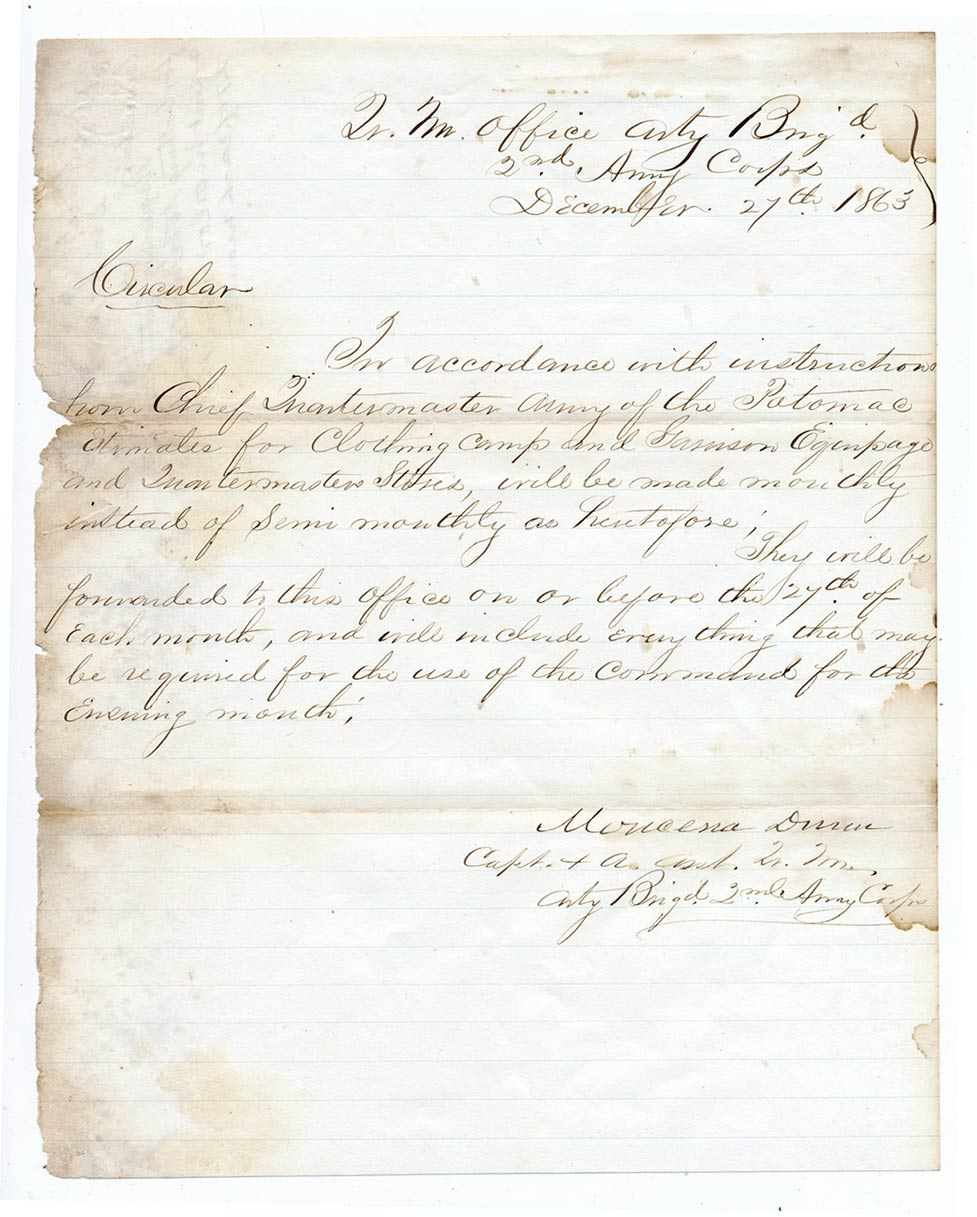 Qr. M. Office Arty Brig'd.
2nd. Army Corps
December. 27th. 1863
Circular
In accordance with instructions
from Chief Quartermaster Army of the Potomac
Estimates for Clothing Camp and Garrison Equipage
and Quartermasters Stores, will be made monthly
instead of Semi monthly as heretofore;
They will be
forwarded to this office on or before the 27th of
Each month, and will include everything that may
be required for the use of the Command for the
Ensuing month;
Dunn
Capt. + A. asst. Qr. M.,
Arty Brig'd. 2nd Army Corps